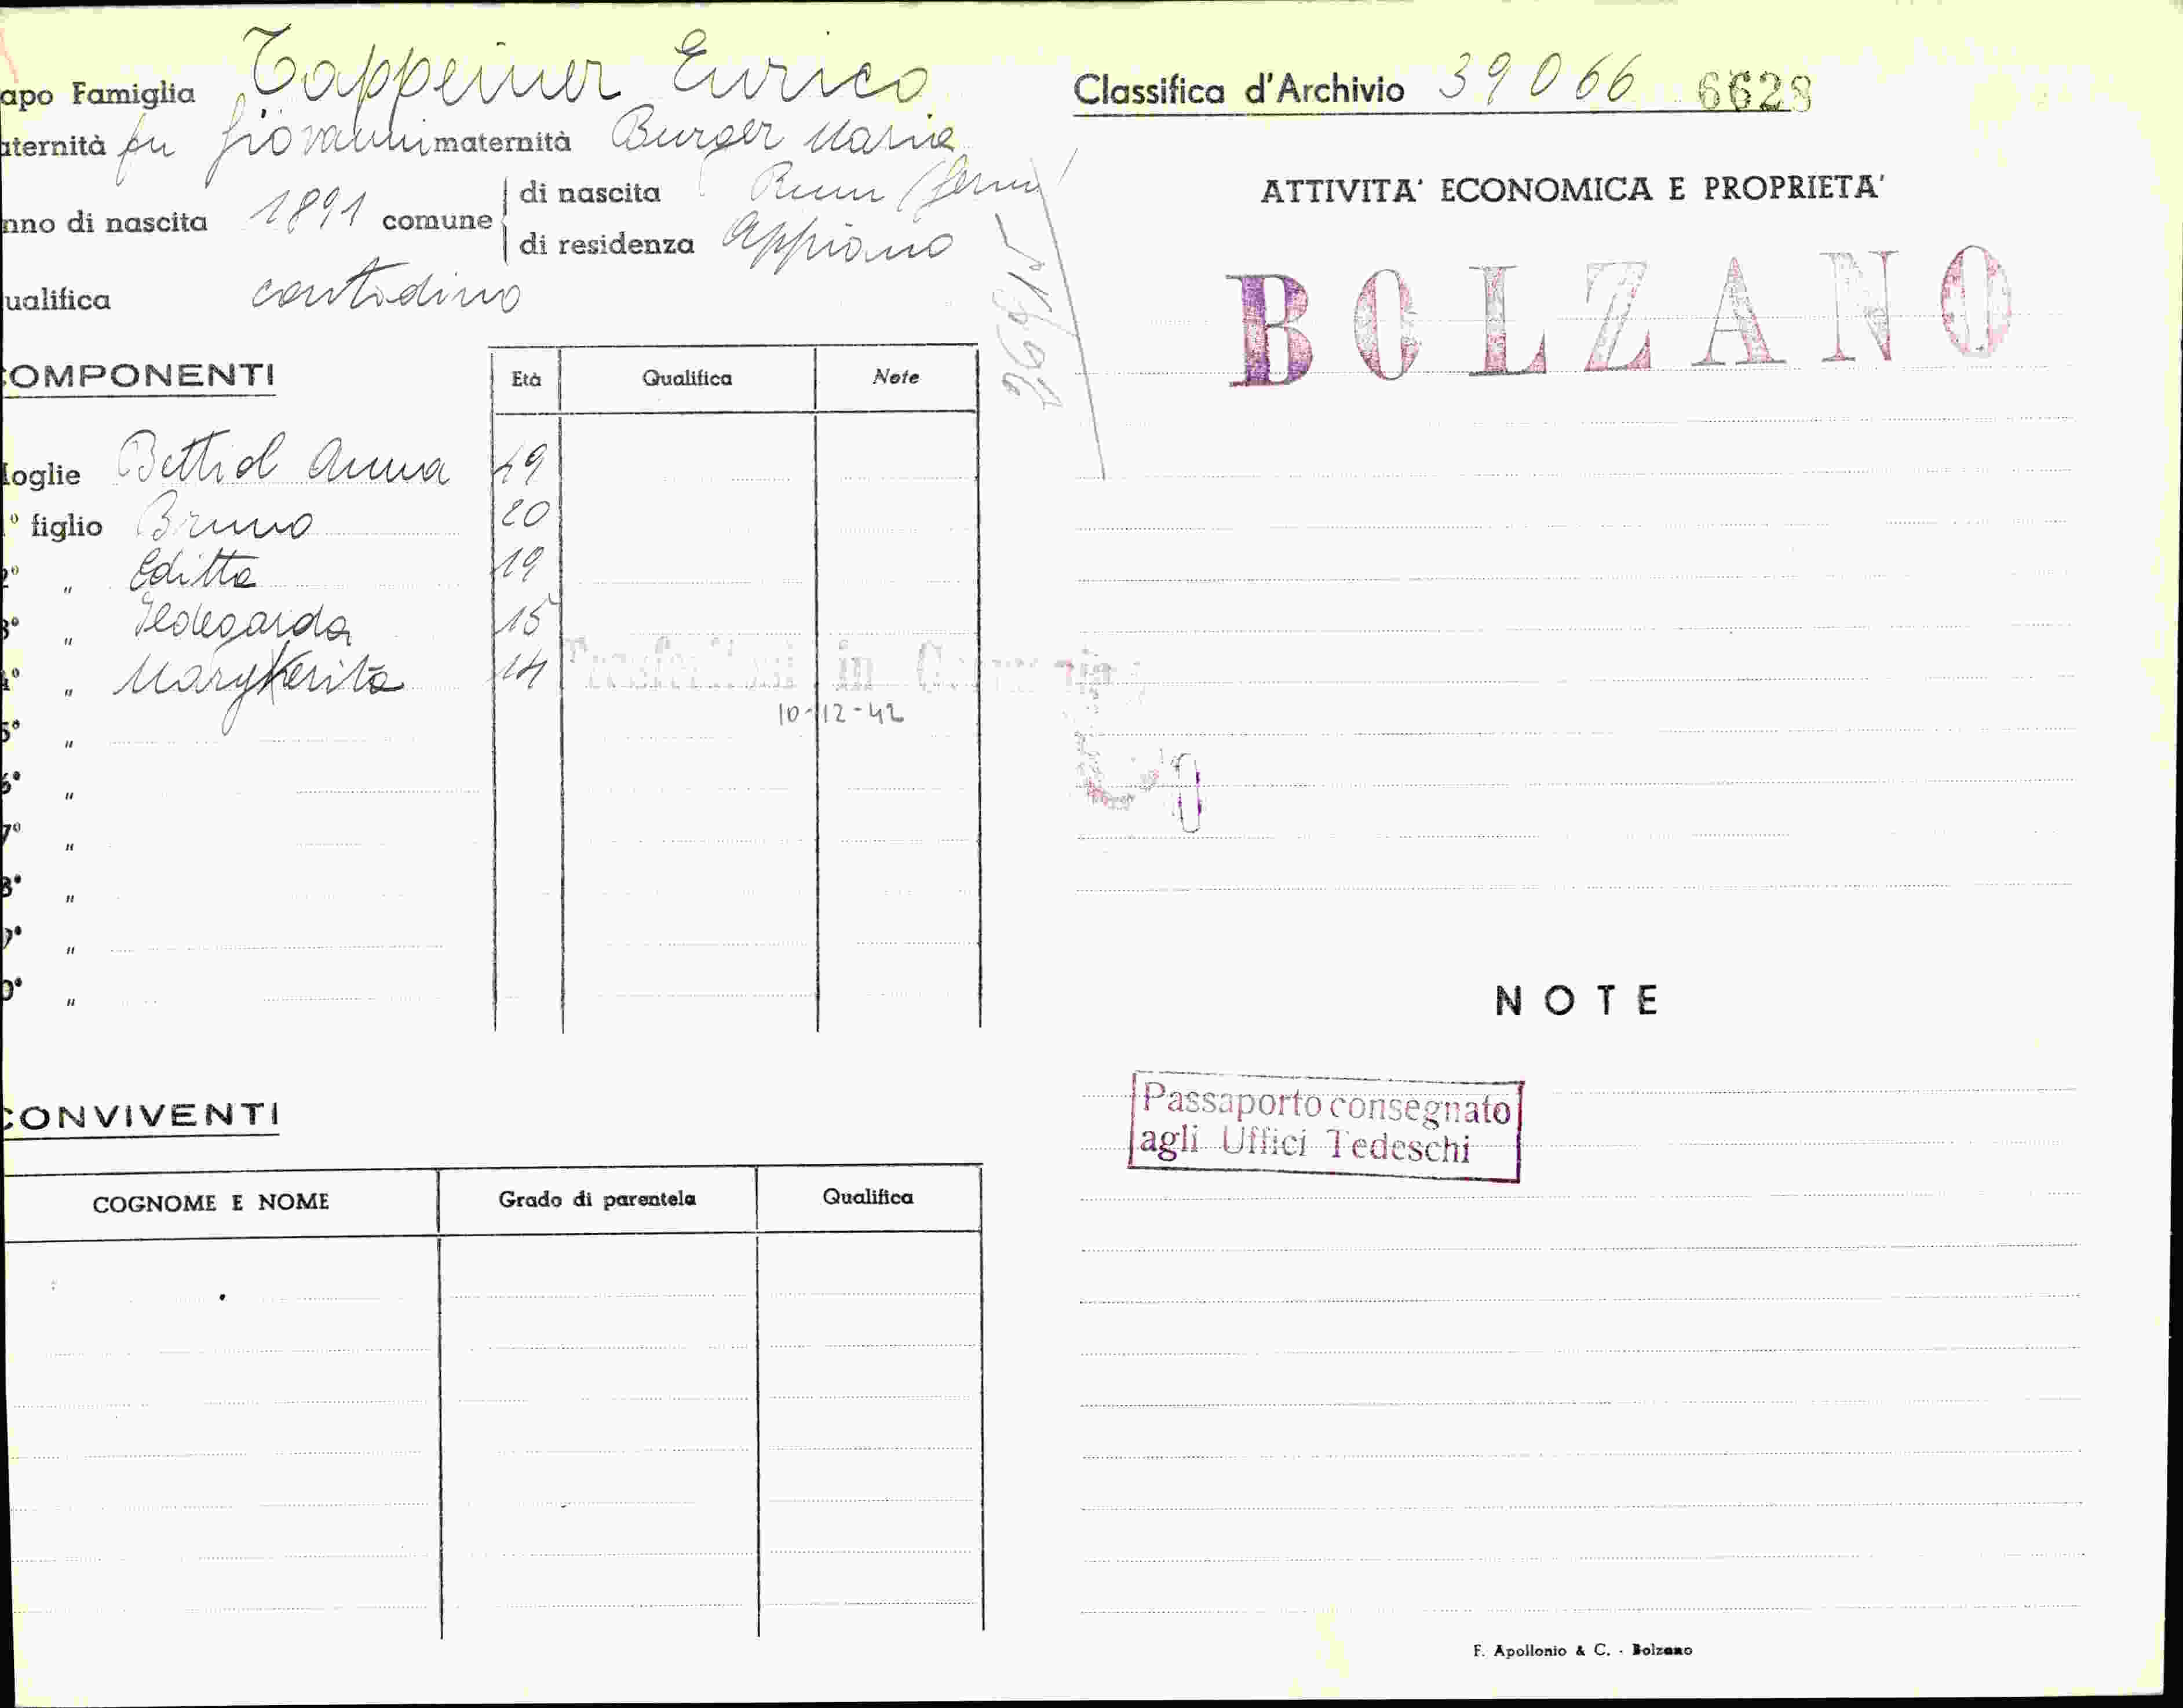 apo Famiglia Tappeiner Enrico
aternità fu Giovanni maternità Burger Maria
nno di nascita 1891 comune di nascita
di residenza Appiano
ualifica contadino
COMPONENTI
Età Qualifica Note
Moglie Bettiol Anna 49
1° figlio Bruno 20
2° " Editta 19
3° " Ildegarda 15
4° " Margherita 14
Trasferitosi in Germania
10-12-42
5° "
6° "
7° "
8° "
9° "
0° "
CONVIVENTI
COGNOME E NOME Grado di parentela Qualifica
Classifica d'Archivio 39066 6628
ATTIVITA' ECONOMICA E PROPRIETA'
BOLZANO
NOTE
Passaporto consegnato
agli Uffici Tedeschi
F. Apollonio & C. - Bolzano